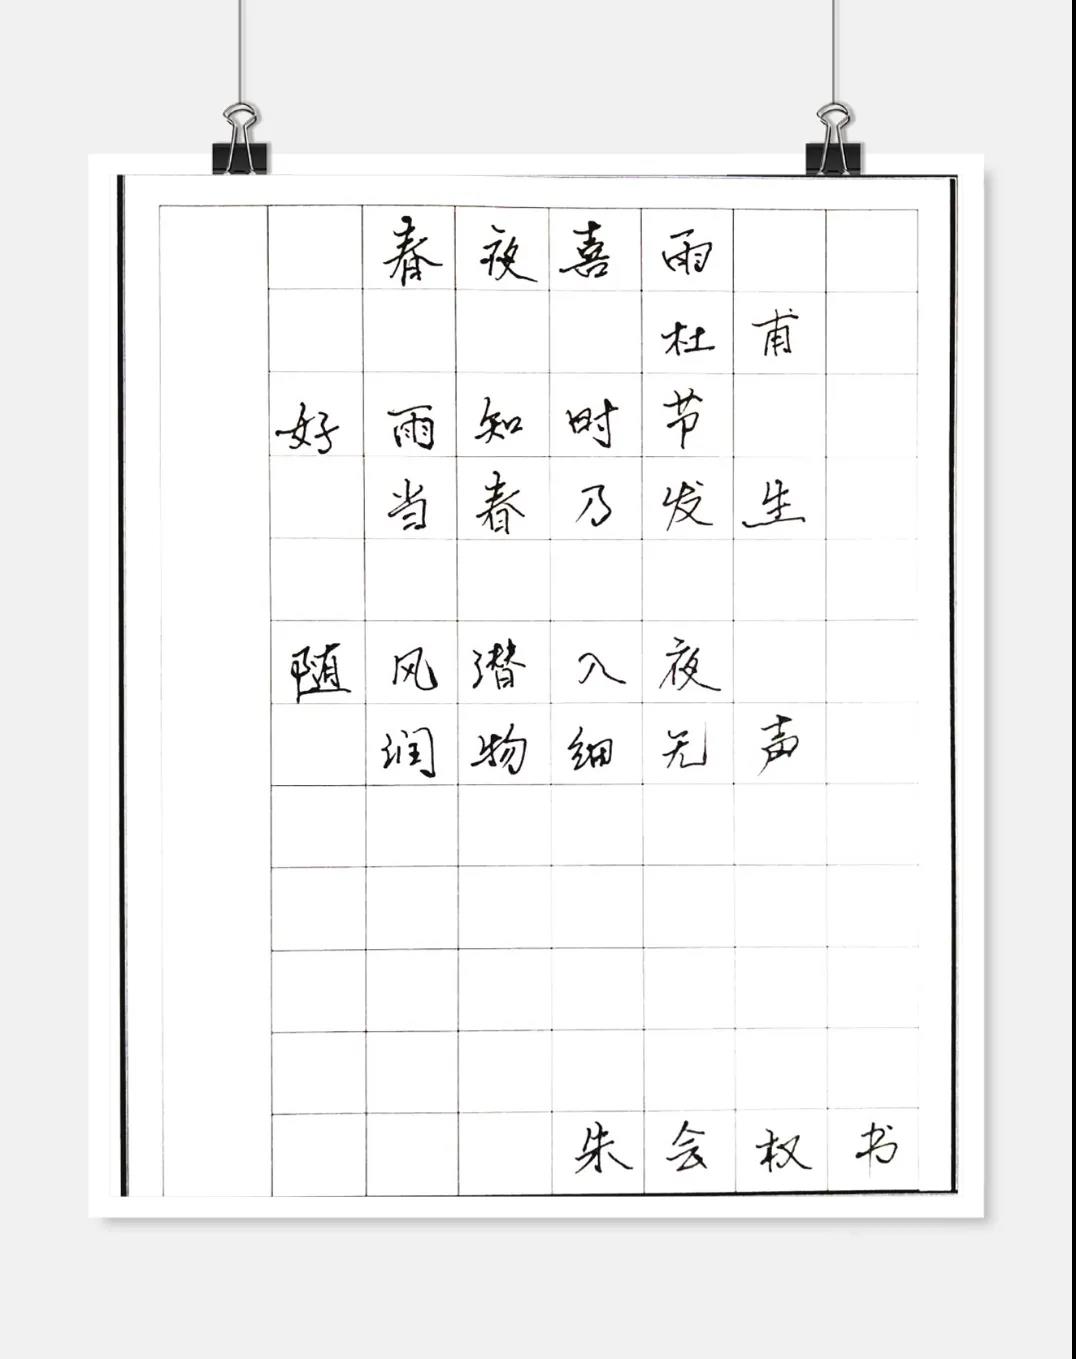 春夜喜雨
杜甫
好雨知时节
当春乃发生
随风潜入夜
润物细无声
朱会权书